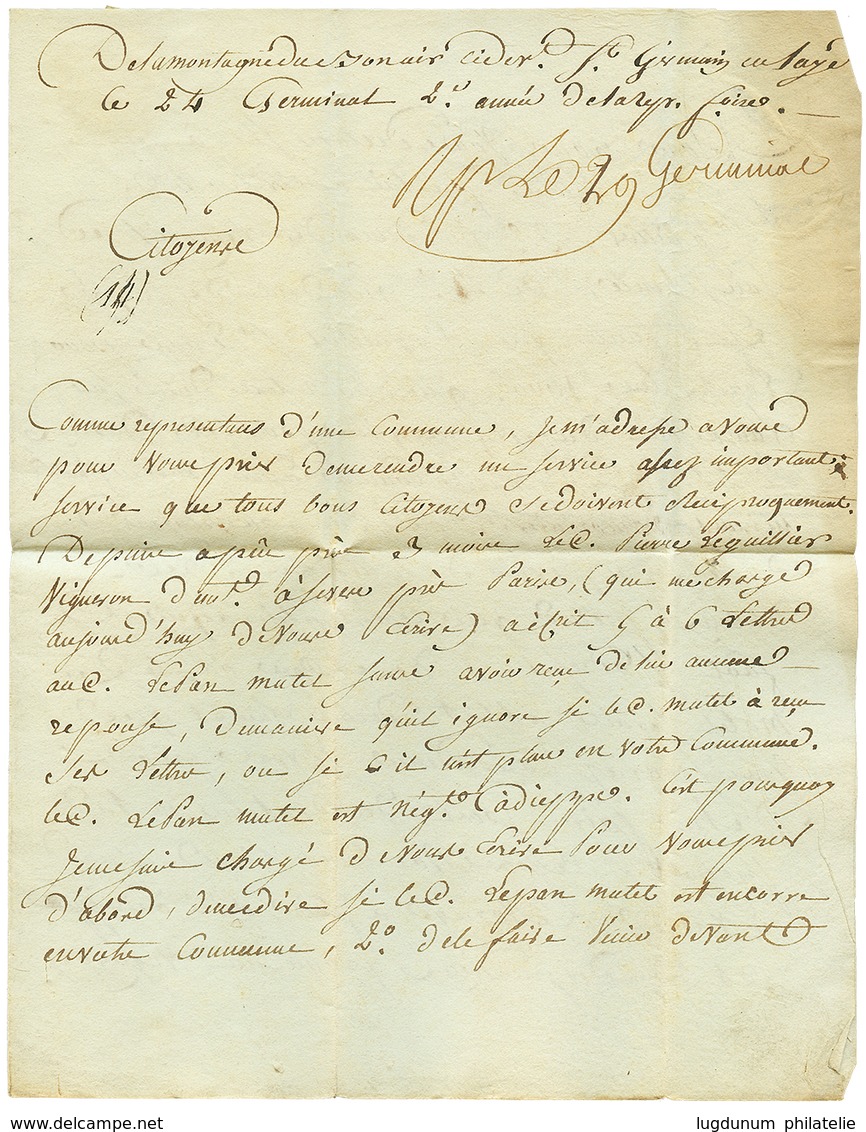 Delamontagne du Bonair cidev.t S.t Germain en laye
le 24 Germinal 2.e année de la rep. fcaise.
Rep le 29 Germinal
Citoyens
Comme representans d'une Commune, je m'adresse a Vous
pour Vous prier de me rendre un service assez important;
service que tous bons Citoyens se doivent Réciproquement.
Depuis apeu près 3 mois le C. Pierre Leguillier
Vigneron dem.t à sevres près Paris, (qui me charge
aujourd'huy de Vous écrire) a écrit 5 à 6 Lettres
au C. LePan mutel sans avoir reçu de lui aucune
reponse, de maniere qu'il ignore si le C. mutel à reçu
ses Lettres, ou s'il n'est plus en votre Commune.
le C. LePan mutel est nég.t à dieppe. C'est pourquoy
je me suis chargé de Vous écrire Pour Vous prier
d'abord, de me dire si le C. Lepan mutel est encorre
en votre Commune, 2.o de le faire Venir deVant
delcampe.com
lugdunum philatelie